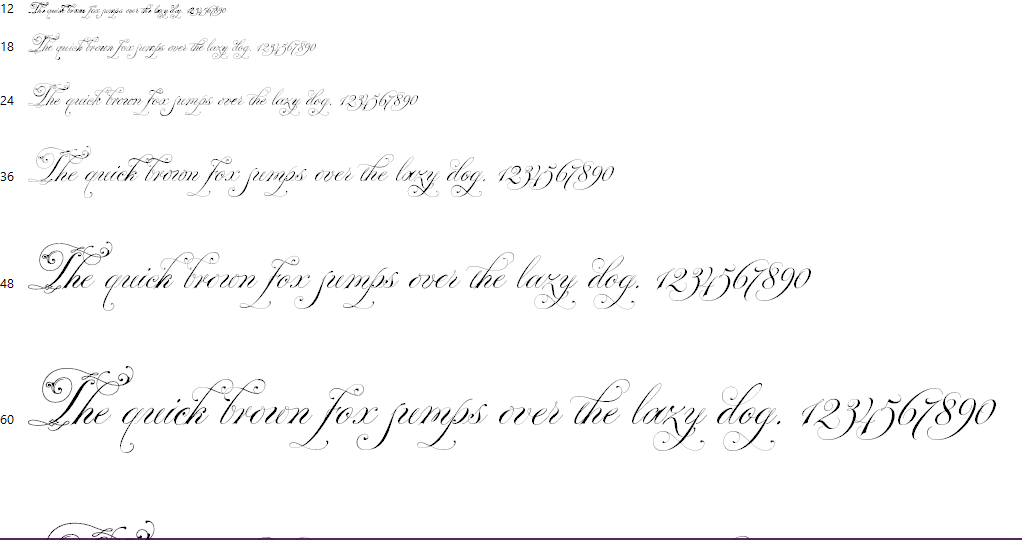 12 The quick brown fox jumps over the lazy dog. 1234567890
18 The quick brown fox jumps over the lazy dog. 1234567890
24 The quick brown fox jumps over the lazy dog. 1234567890
36 The quick brown fox jumps over the lazy dog. 1234567890
48 The quick brown fox jumps over the lazy dog. 1234567890
60 The quick brown fox jumps over the lazy dog. 1234567890